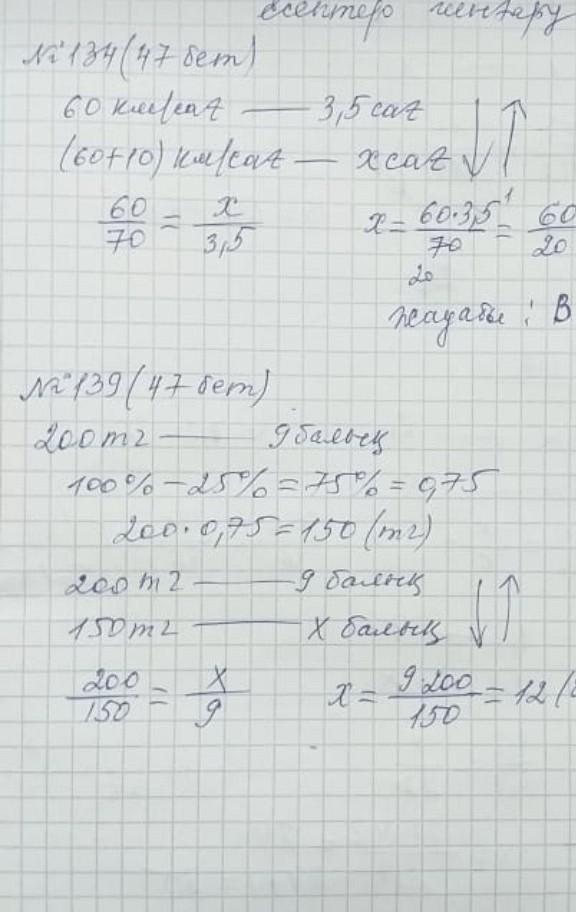 есептер шығару
№134 (47 бет)
60 км/сағ — 3,5 сағ
(60+10) км/сағ — x сағ
60/70 = x/3,5 x = 60·3,5/70 = 60/20
1
20
жауабы: В
№139 (47 бет)
200 тг — 9 балық
100% - 25% = 75% = 0,75
200 · 0,75 = 150 (тг)
200 тг — 9 балық
150 тг — х балық
200/150 = x/9 x = 9·200/150 = 12